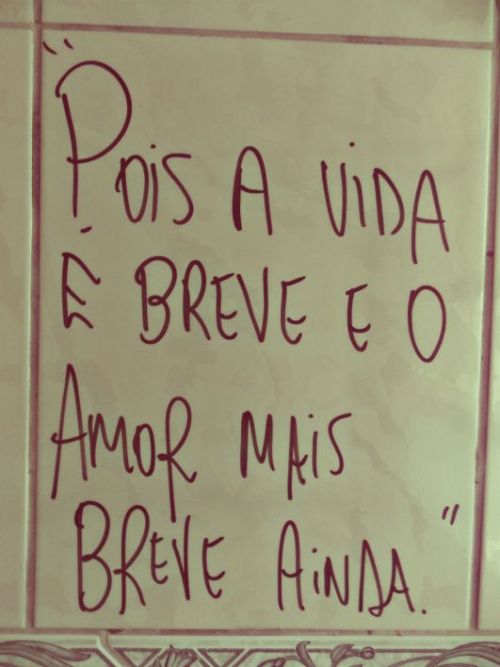 "Pois A ViDA
É BREVE E O
AMOR MAiS
BREVE AiNDA."